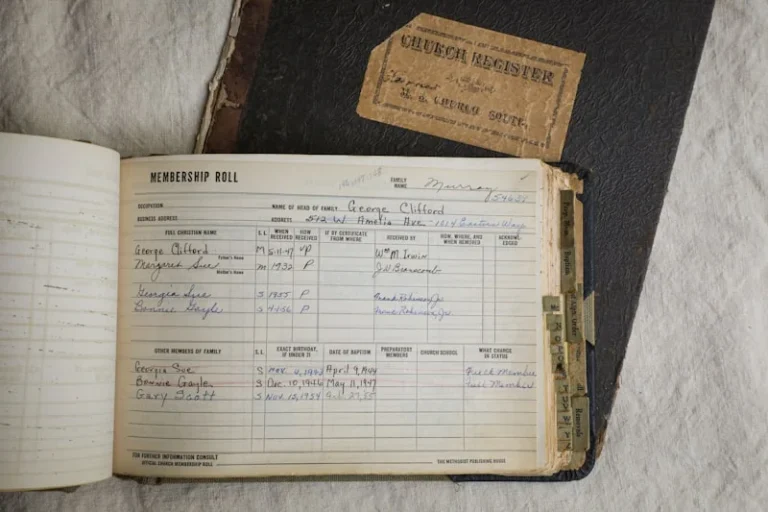 CHURCH REGISTER
M. E. CHURCH SOUTH.
MEMBERSHIP ROLL
FAMILY NAME Murray
OCCUPATION NAME OF HEAD OF FAMILY George Clifford
BUSINESS ADDRESS ADDRESS 512 W. Amelia Ave 1014 Eastern Way
FULL CHRISTIAN NAME S.L. WHEN RECEIVED HOW RECEIVED IF BY CERTIFICATE FROM WHERE RECEIVED BY HOW, WHERE, AND WHEN REMOVED ACKNOWLEDGED
George Clifford M 5-11-47 Wm M Irwin
Father's Name
Sue M 1932 P J.W. Branscomb
Mother's Name
Georgia Sue S 1955 P
Bonnie Gayle S 4-1-56 P
OTHER MEMBERS OF FAMILY S.L. EXACT BIRTHDAY, IF UNDER 21 DATE OF BAPTISM PREPARATORY MEMBERS CHURCH SCHOOL WHAT CHANGE IN STATUS
Georgia Sue S April 9, 1944 Full Member
Bonnie Gayle S Dec. 10, 1946 May 11, 1947 Full Member
Gary Scott S Nov. 12, 1954
FOR FURTHER INFORMATION CONSULT
OFFICIAL CHURCH MEMBERSHIP ROLL THE METHODIST PUBLISHING HOUSE